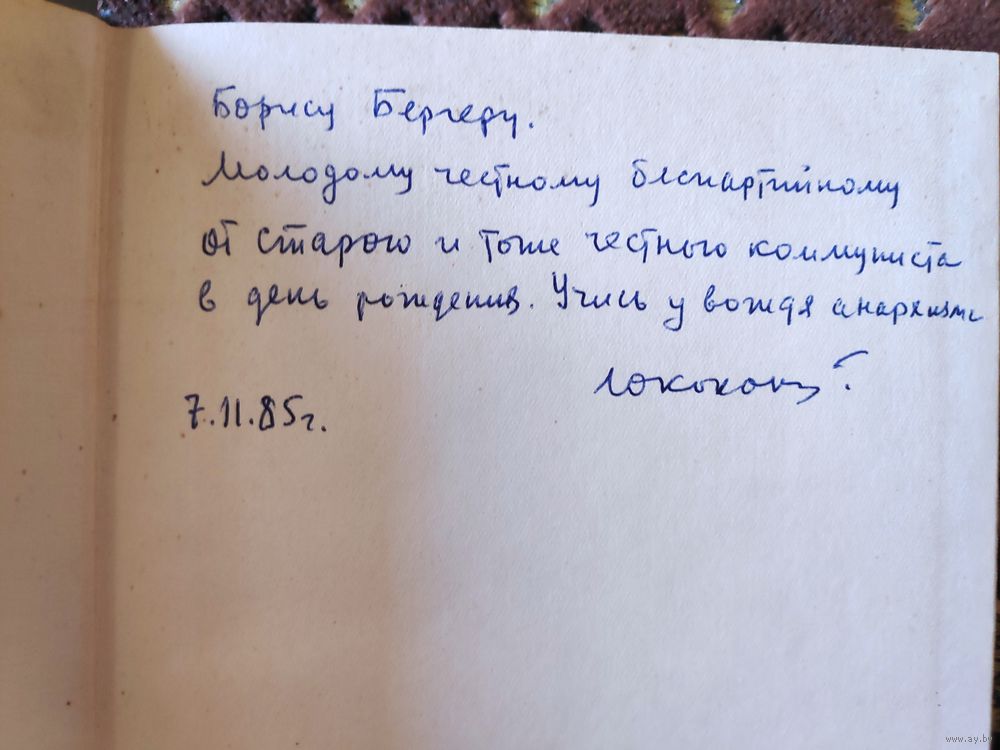 Борису Бергеру.
Молодому честному беспартийному
от старого и тоже честного коммуниста
в день рождения. Учись у вождя анархизма
7.11.85г.
www.ay.by